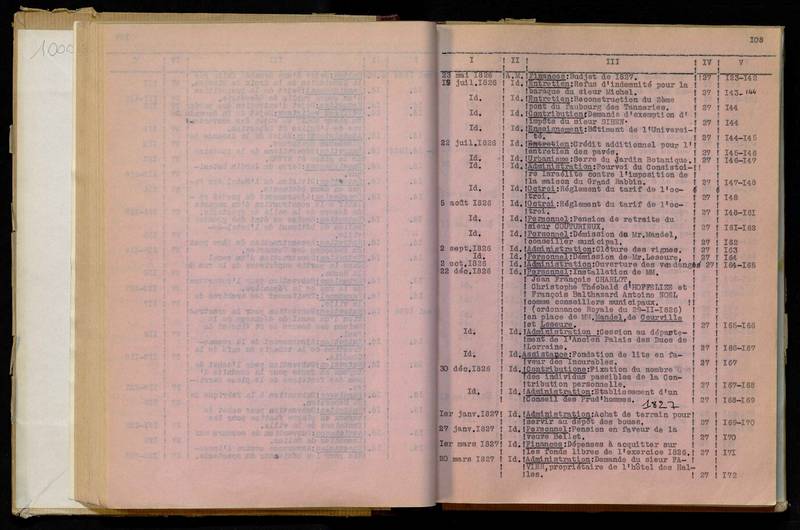 1000
108
I II III IV V
23 mai 1826 A.M. Finances:Budjet de 1827. 27 I23-I42
19 juil.1826 Id. Entretien:Refus d'indemnité pour la
baraque du sieur Michel. 27 I43-144
Id. Id. Entretien:Reconstruction du 2ème
pont du faubourg des Tanneries. 27 I44
Id. Id. Contribution:Demande d'exemption d'
impôts du sieur SIBEN. 27 I44
Id. Id. Enseignement:Bâtiment de l'Universi-
té. 27 I44-I45
22 juil.1826 Id. Entretien:Crédit additionnel pour l'
entretien des pavés. 27 I45-I46
Id. Id. Urbanisme:Serre du Jardin Botanique. 27 I46-I47
Id. Id. Administration:Pourvoi du Consistoi-
re Israélite contre l'imposition de
la maison du Grand Rabbin. 27 I47-I48
Id. Id. Octroi:Réglement du tarif de l'oc-
troi. 27 I48
5 août 1826 Id. Octroi:Réglement du tarif de l'oc-
troi. 27 I48-I61
Id. Id. Personnel:Pension de retraite du
sieur COUTURIEUX. 27 I61-I62
Id. Id. Personnel:Démission de Mr.Mandel,
conseiller municipal. 27 I62
2 sept.1826 Id. Administration:Clôture des vignes. 27 I63
Id. Id. Personnel:Démission de Mr.Leseure. 27 I64
2 oct.1826 Id. Administration:Ouverture des vendanges 27 I64-I65
22 déc.1826 Id. Personnel:Installation de MM.
Jean François CHARLOT
Christophe Théobald d'HOFFELIZE et
François Balthazard Antoine NOEL
comme conseillers municipaux.
(ordonnance Royale du 29-II-1826)
en place de MM.Mandel,de Courville
et Leseure. 27 I65-I66
Id. Id. Administration :Cession au départe-
ment de l'Ancien Palais des Ducs de
Lorraine. 27 I66-I67
Id. Id. Assistance:Fondation de lits en fa-
veur des Incurables. 27 I67
30 déc.1826 Id. Contributions:Fixation du nombre
des individus passibles de la Con-
tribution personnelle. 27 I67-I68
Id. Id. Administration:Etablissement d'un
Conseil des Prud'hommes. 27 I68-I69
1827
Ier janv.1827 Id. Administration:Achat de terrain pour
servir au dépôt des boues. 27 I69-I70
27 janv.1827 Id. Personnel:Pension en faveur de la
veuve Bellet. 27 I70
Ier mars 1827 Id. Finances:Dépenses à acquitter sur
les fonds libres de l'exercice 1826. 27 I7I
20 mars 1827 Id. Administration:Demande du sieur PA-
VIER,propriétaire de l'hôtel des Hal-
les. 27 I72